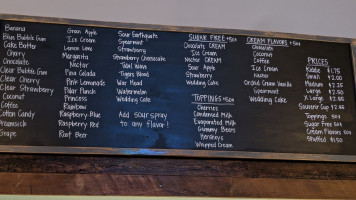 Banana
Blue Bubble Gum
Cake Batter
Cherry
Chocolate
Clear Bubble Gum
Clear Cherry
Coconut
Coffee
Cotton Candy
Dreamsicle
Grape
Green Apple
Ice Cream
Lemon Lime
Margarita
Nectar
Pina Colada
Pink Lemonade
Polar Punch
Princess
Rainbow
Raspberry Blue
Raspberry Red
Root Beer
Sour Earthquake
Spearmint
Strawberry
Strawberry Cheesecake
Tidal Wave
Tigers Blood
War Head
Watermelon
Wedding Cake
Add sour spray
to any flavor!
SUGAR FREE +50¢
Chocolate CREAM
Ice Cream
Nectar CREAM
Sour Apple
Strawberry
Wedding Cake
TOPPINGS +50¢
Cherries
Condensed Milk
Evaporated Milk
Gummy Bears
Hersheys
Whipped Cream
CREAM FLAVORS +50¢
Chocolate
Coconut
Coffee
Ice Cream
Nectar
Orchid Cream Vanilla
Spearmint
Wedding Cake
PRICES
Kiddie $1.75
Small $2.00
Medium $2.25
Large $2.50
X Large
Souvenir Cup
Toppings 50¢
Sugar Free 50¢
Cream Flavors 50¢
Stuffed $1.50